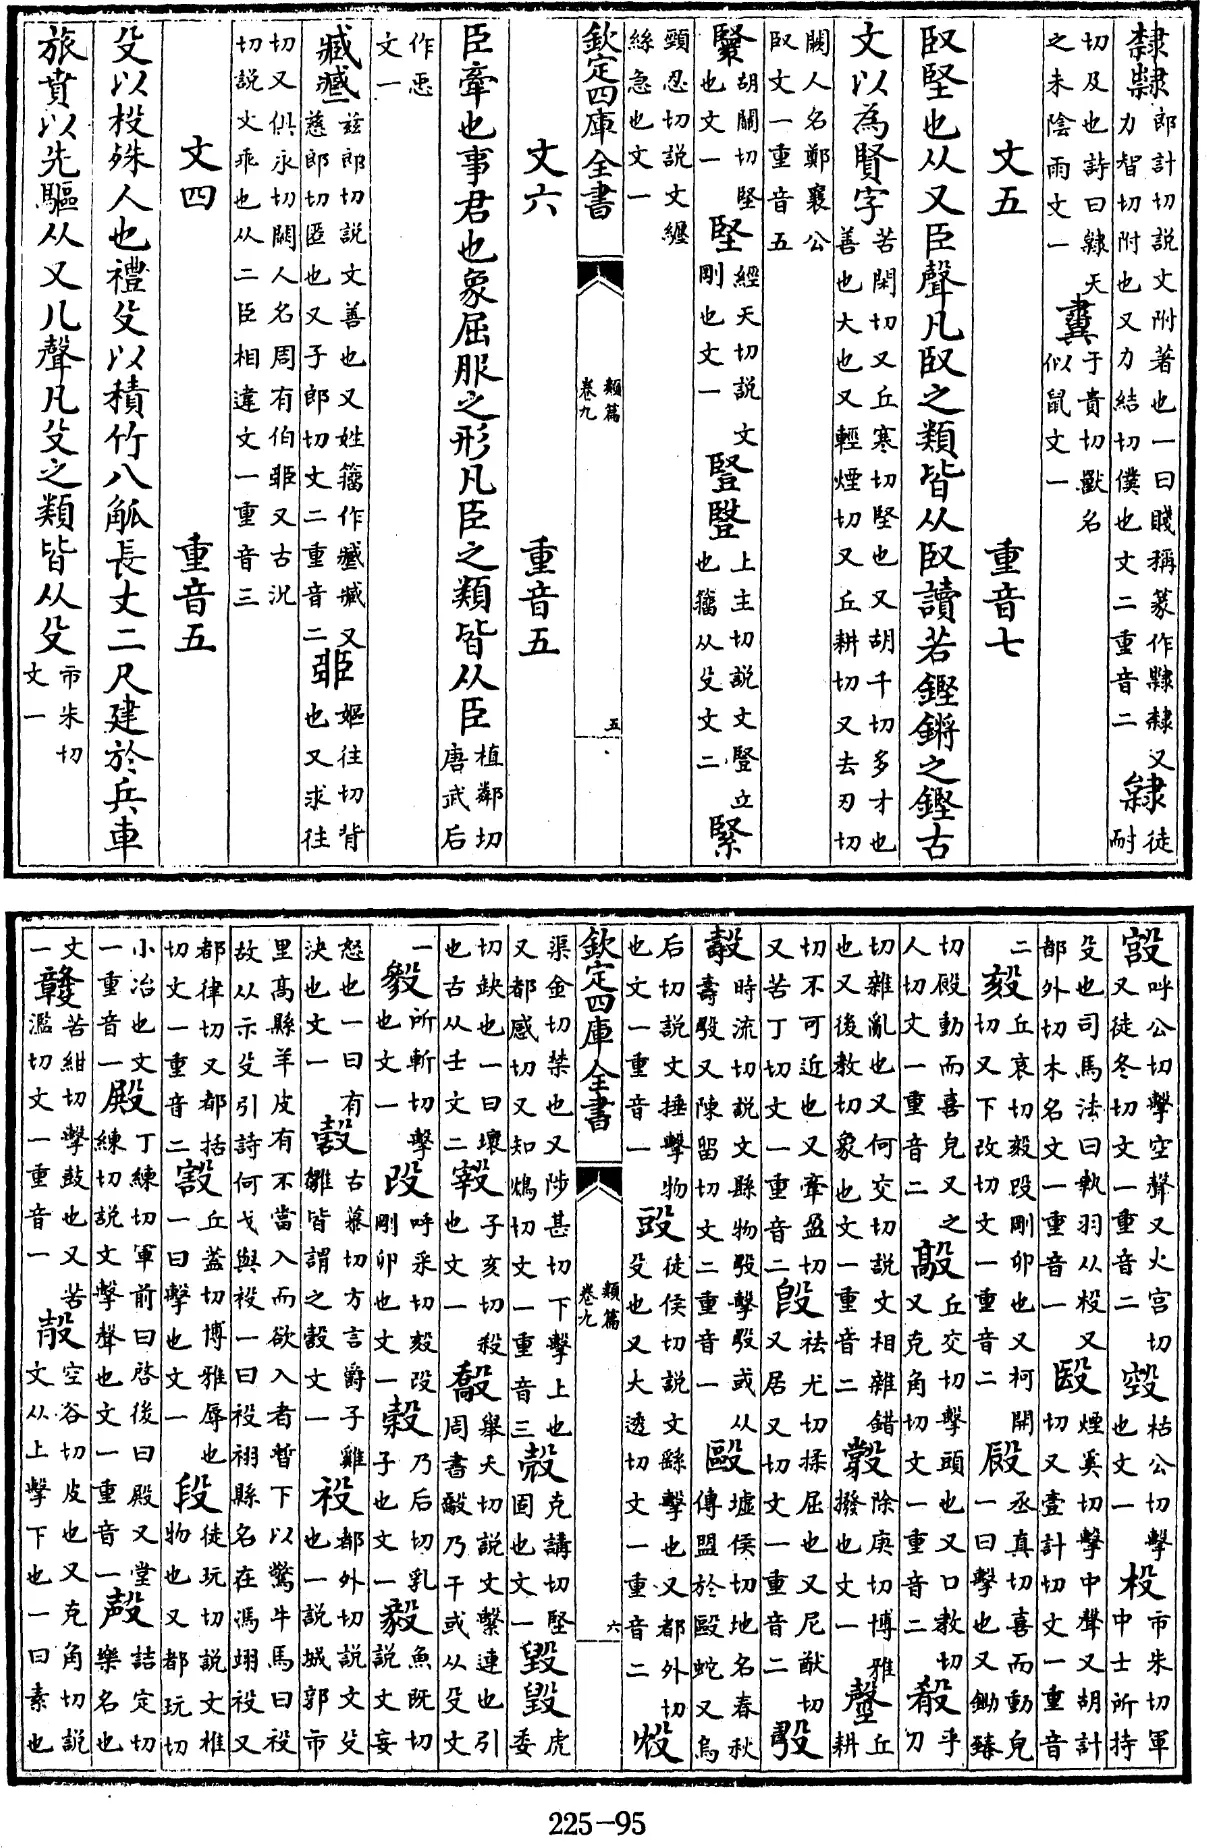 隸𨽻郎計切説文附著也一曰賤稱篆作隸𨽻又力智切附也又力結切僕也文二重音二隶徒耐
切及也詩曰隸天之未陰雨文一于貴切獸名似鼠文一
文五 重音七
臤堅也从又臣聲凡臤之類皆从臤讀若鏗鏘之鏗古
文以為賢字苦閑切又丘寒切堅也又胡千切多才也善也大也又輕煙切又丘耕切又去刃切
闕人名鄭襄公臤文一重音五
胡關切堅也文一堅經天切説文剛也文一豎豎上主切説文豎立也籀从殳文二緊
頸忍切説文纒絲急也文一
欽定四庫全書 類篇卷九 五
文六 重音五
臣牽也事君也象屈服之形凡臣之類皆从臣植鄰切唐武后
作𢘑文一
臧兹郎切説文善也又姓籀作臧又慈郎切匿也又子郎切文二重音二𦣦嫗往切背也又求往
切又俱永切闕人名周有伯𦣦又古況切説文乖也从二臣相違文一重音三
文四 重音五
殳以杸殊人也禮殳以積竹八觚長丈二尺建於兵車
旅賁以先驅从又几聲凡殳之類皆从殳市朱切文一
呼公切擊空聲又火宫切又徒冬切文一重音二枯公切擊也文一杸市朱切軍中士所持
殳也司馬法曰執羽从杸又都外切木名文一重音一殹煙奚切擊中聲又胡計切又壹計切文一重音
二㱾丘哀切㱾改剛卯也又柯開切又下改切文一重音二丞真切喜而動皃一曰擊也又鋤臻
切動而喜皃又之人切文一重音二丘交切擊頭也又口教切又克角切文一重音二殽乎刀
切雜亂也又何交切説文相雜錯也又後教切象也文一重音二除庚切博雅撥也文一丘耕
切不可近也又牽盈切又苦丁切文一重音二袪尤切揉屈也又居又切又尼猷切文一重音二
時流切説文縣物擊或从壽又陳留切文二重音一毆墟侯切地名春秋傳盟於毆蛇又烏
后切説文捶擊物也文一重音一徒侯切説文繇擊也殳也又大透切又都外切文一重音二
渠金切禁也又陟甚切下擊上也又都感切又知鴆切文一重音三克講切堅固也文一毀毀虎委
切缺也一曰壞也古从壬文二子亥切殺也文一舉夭切説文繫連也引周書乃干或从殳文
一所斬切擊也文一呼采切㱾改剛卯也文一㝅乃后切乳子也文一毅魚既切説文妄
怒也一曰有決也文一古慕切方言爵子雞雛皆謂之文一祋都外切説文殳也一説城郭市
里髙縣羊皮有不當入而欲入者暫下以驚牛馬曰祋故从示殳引詩何戈與祋一曰祋祤縣名在馮翊祋又
都律切又都括切文一重音二丘蓋切博雅辱也一曰擊也文一段徒玩切説文椎物也又都玩切
小冶也文一重音一殿丁練切軍前曰啓後曰殿又堂練切説文擊聲也文一重音一殸詰定切樂名也
文一苦紺切擊鼓也又苦濫切文一重音一㱿空谷切皮也又克角切説文从上擊下也一曰素也
欽定四庫全書 類篇卷九 六
225-95